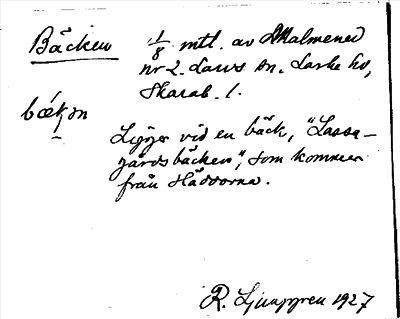 Bäcken 1/8 mtl. av Malmened
nr 2. Larvs sn. Larke hd,
Skarab. l.
bækən
Ligger vid en bäck, "Lassa-
gårdsbäcken", som kommer
från Häddorna.
R. Ljunggren 1927